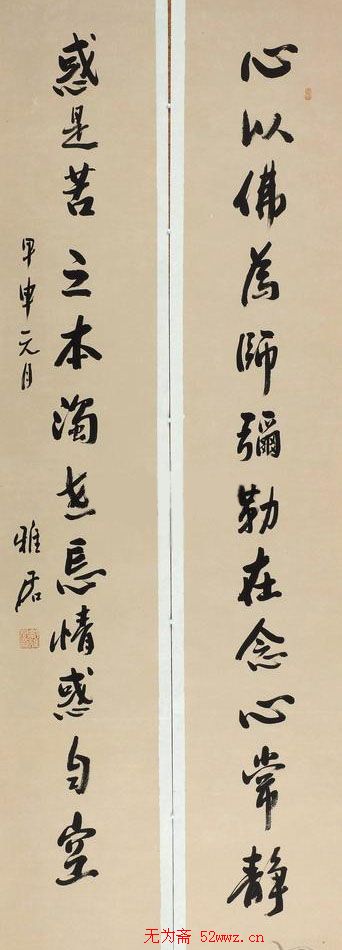 心以佛為師彌勒在念心常静
惑是苦之本濁世忘情惑自空
甲申元月
雅居
无为斋 52wwz.cn